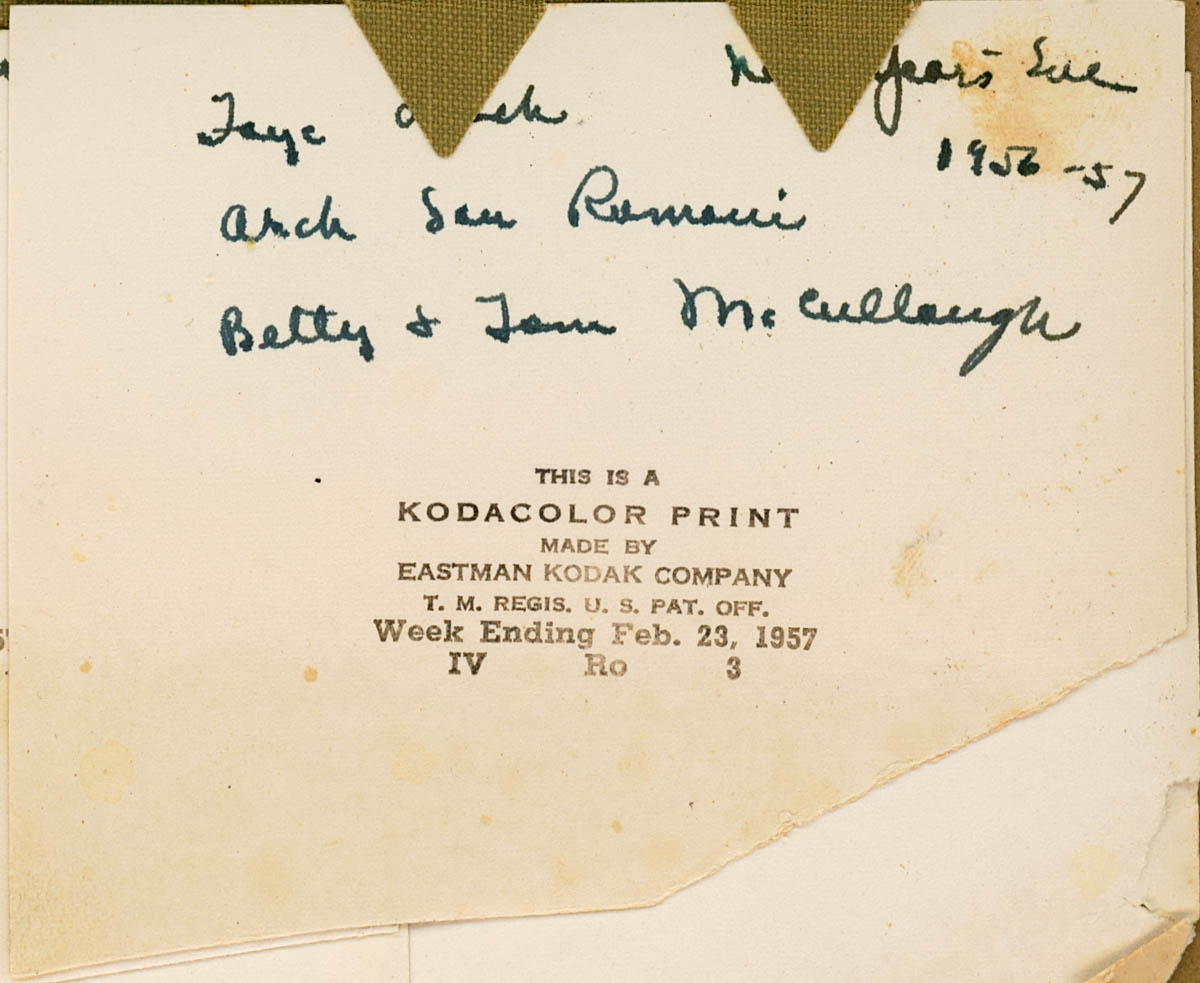 Years Eve
Faye
1956-57
Arch San Romani
Betty & Tom McCullaugh
THIS IS A
KODACOLOR PRINT
MADE BY
EASTMAN KODAK COMPANY
T. M. REGIS. U. S. PAT. OFF.
Week Ending Feb. 23, 1957
IV Ro 3